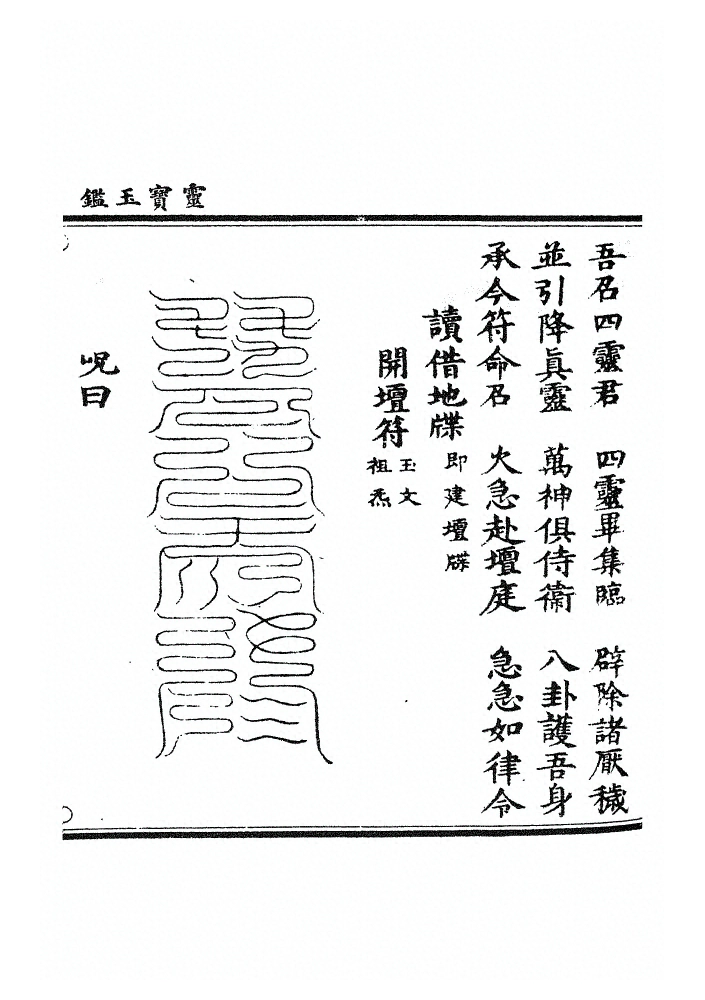 靈寶玉鑑
吾召四靈君 四靈畢集臨 辟除諸厭穢
並引降眞靈 萬神俱侍衞 八卦護吾身
承今符命召 火急赴壇庭 急急如律令
讀借地牒 即建壇牒
開壇符 玉文祖炁
呪曰